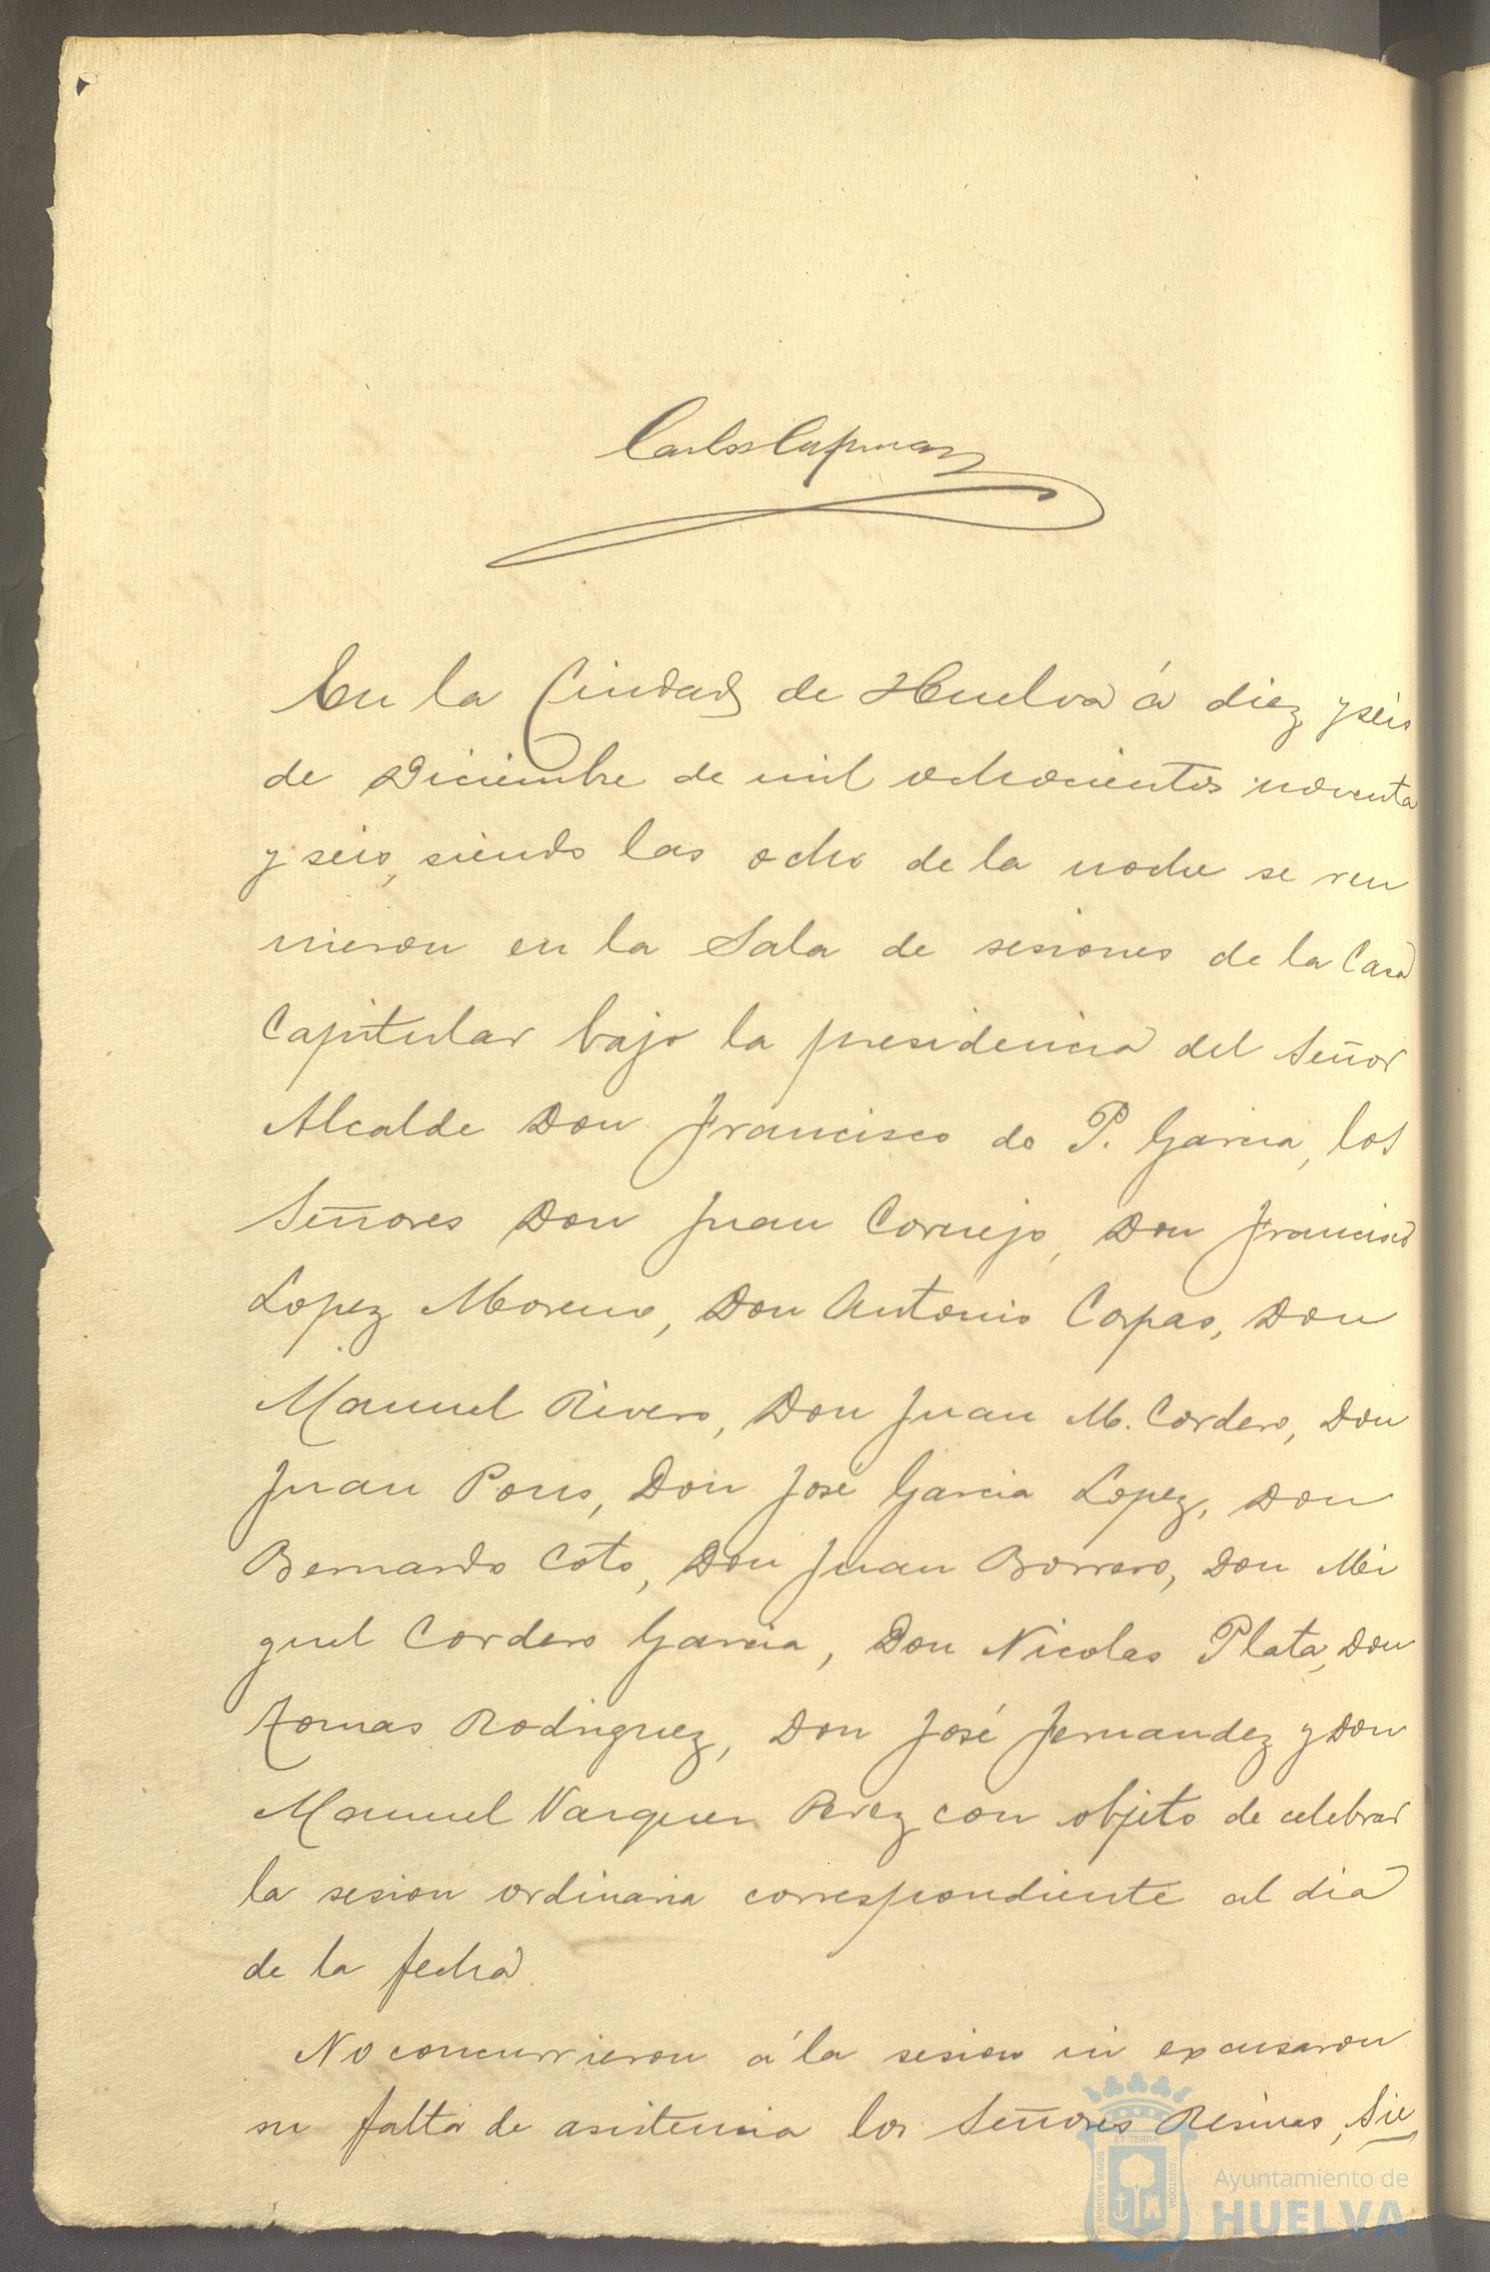 En la Ciudad de Huelva á diez y seis
de Diciembre de mil ochocientos noventa
y seis, siendo las ocho de la noche se reu
nieron en la Sala de sesiones de la Casa
Capitular bajo la presidencia del Señor
Alcalde Don Francisco de P. Garcia, los
Señores Don Juan Cornejo, Don Francisco
Lopez Moreno, Don Antonio Carpas, Don
Manuel Rivero, Don Juan M. Cordero, Don
Juan Pons, Don José Garcia Lopez, Don
Bernardo Coto, Don Juan Borrero, Don Mi
guel Cordero Garcia, Don Nicolas Plata, Don
Tomas Rodriguez, Don José Fernandez y Don
Manuel Vazquez Perez con objeto de celebrar
la sesion ordinaria correspondiente al dia
de la fecha.
No concurrieron á la sesion ni excusaron
su falta de asistencia los Señores Resines, Sie
Ayuntamiento de
HUELVA